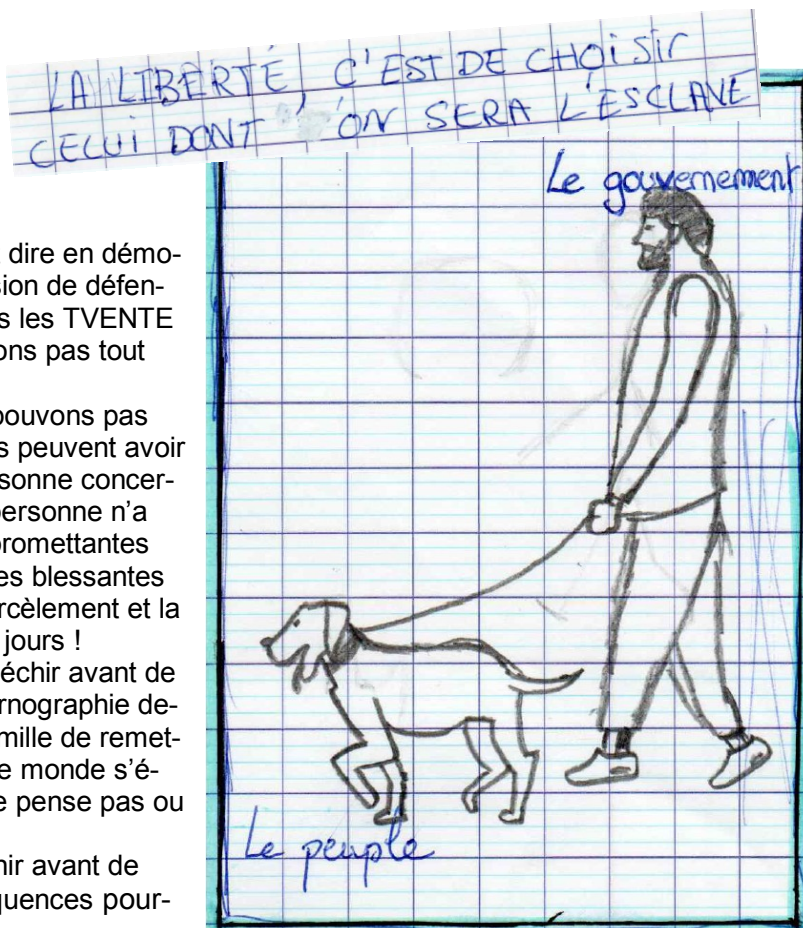 LA LIBERTÉ, C'EST DE CHOISIR
CELUI DONT ON SERA L'ESCLAVE
Le gouvernement
dire en démo-
sion de défen-
s les TVENTE
ons pas tout
pouvons pas
s peuvent avoir
sonne concer-
personne n'a
promettantes
es blessantes
rcèlement et la
jours !
échir avant de
rnographie de-
mille de remet-
e monde s'é-
e pense pas ou
hir avant de
quences pour-
Le peuple